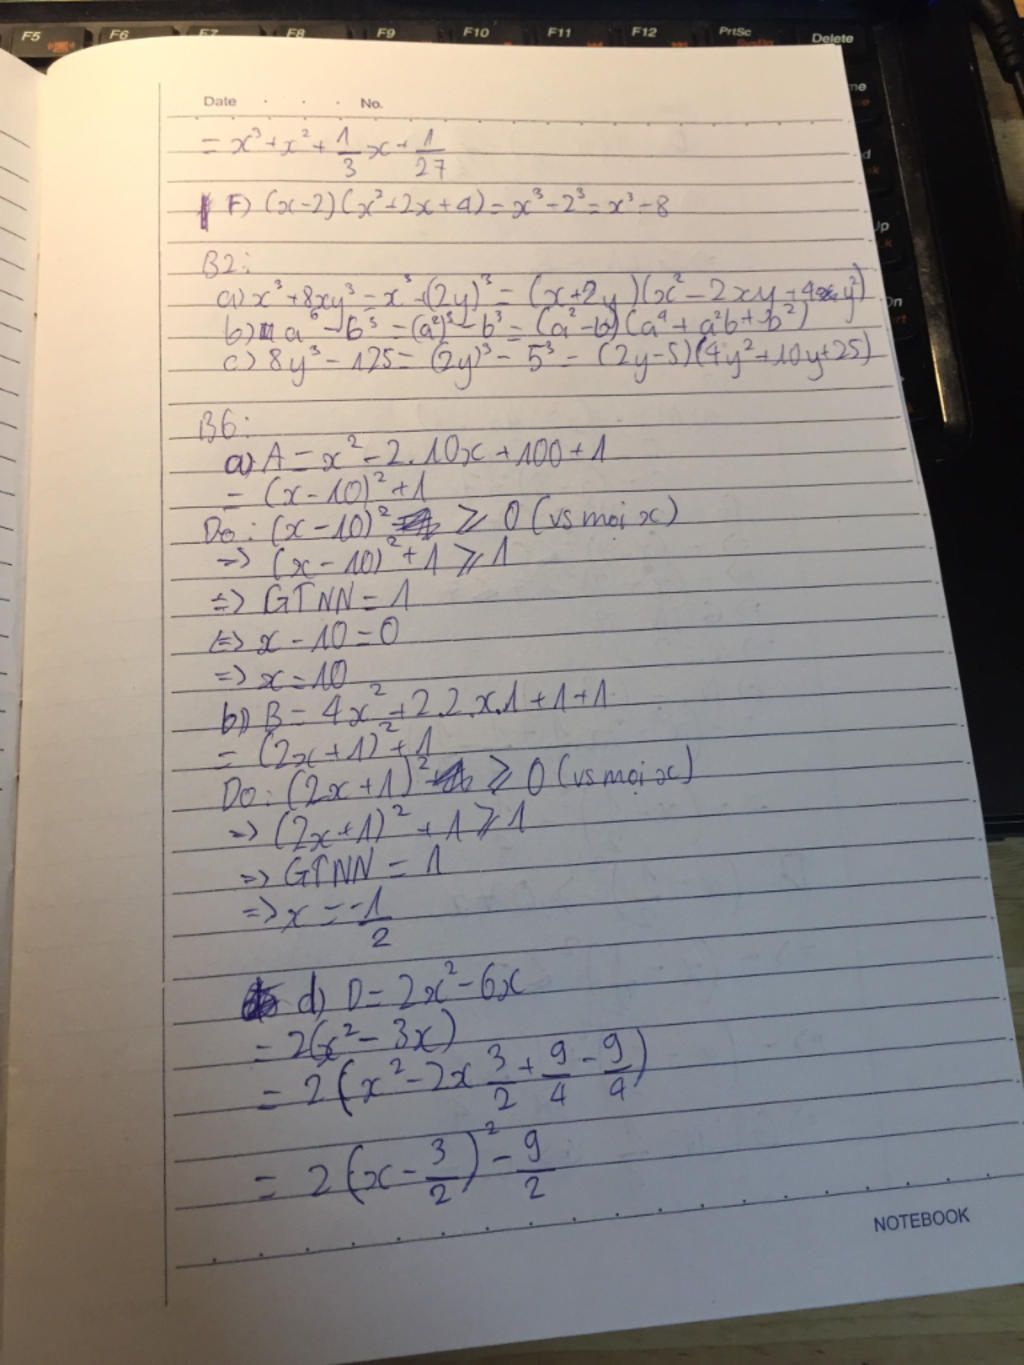 F5 F6 F7 F8 F9 F10 F11 F12 PrtSc Delete
Date . . . No.
= x³ + x² + 1/3 x + 1/27
F) (x-2)(x²+2x+4) = x³ - 2³ = x³ - 8
B2:
a) x³ + 8xy³ = x³ + (2y)³ = (x+2y)(x² - 2xy + 4y²)
b) a⁶ - b³ = (a²)³ - b³ = (a² - b)(a⁴ + a²b + b²)
c) 8y³ - 125 = (2y)³ - 5³ = (2y-5)(4y²+10y+25)
B6:
a) A = x² - 2.10x + 100 + 1
= (x - 10)² + 1
Do: (x - 10)² ⩾ 0 (vs mọi x)
=> (x - 10)² + 1 ⩾ 1
=> GTNN = 1
<=> x - 10 = 0
=> x = 10
b) B = 4x² + 2.2.x.1 + 1 + 1
= (2x + 1)² + 1
Do: (2x + 1)² ⩾ 0 (vs mọi x)
=> (2x + 1)² + 1 ⩾ 1
=> GTNN = 1
=> x = -1/2
d) D = 2x² - 6x
= 2(x² - 3x)
= 2(x² - 2x 3/2 + 9/4 - 9/4)
= 2(x - 3/2)² - 9/2
NOTEBOOK